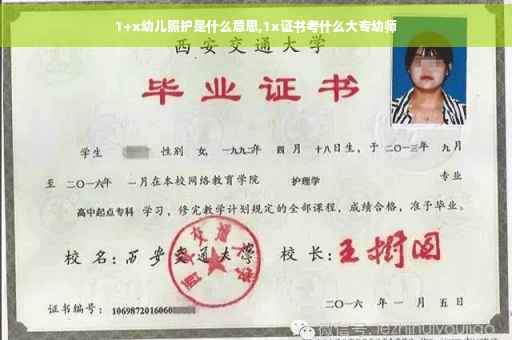 1+x幼儿照护是什么意思,1x证书考什么大专幼师
西安交通大学
毕业证书
学生 性别 女，一九九二年 四月 十八日生，于二〇一三年 九月
至 二〇一六年 一月在本校网络教育学院 护理学 专业
高中起点专科 学习，修完教学计划规定的全部课程，成绩合格，准予毕业。
校名：西安交通大学 校长：王树国
证书编号：1069872016060
二〇一六年 一月 五日
微信号: jezhihuiyoujiao